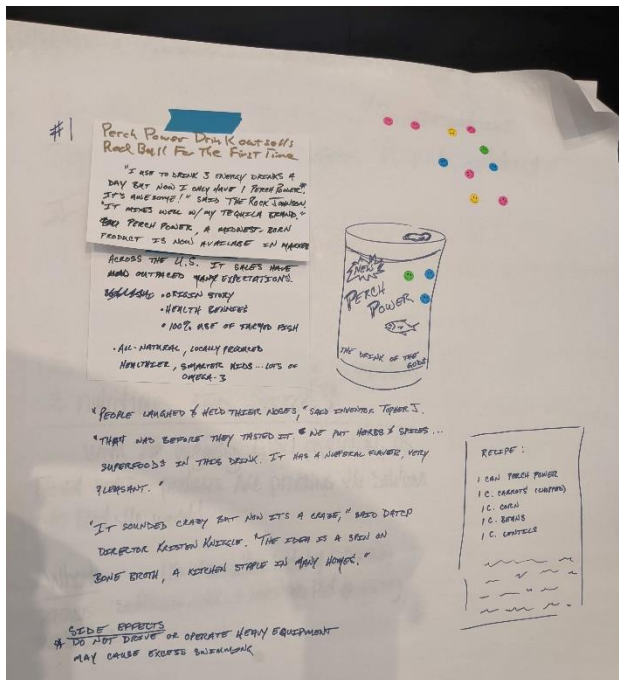 #1
Perch Power Drink outsells
Red Bull For The First Time
"I use to drink 3 energy drinks a
day but now I only have 1 Perch Power*.
It's awesome!" said The Rock Johnson.
"It mixes well w/ my tequila brand."
Perch Power, a Midwest-born
product is now available in markets
across the U.S. It sales have
outpaced many expectations.
• Origin story
• Health bennees
• 100% use of farmed fish
• All-natural, locally produced
Healthier, smarter kids... lots of
omega-3
New!
Perch
Power
The drink of the
gods
"People laughed & held thier noses," said inventor Topher J.
"That was before they tasted it. We put herbs & spices...
superfoods in this drink. It has a nutferal flavor, very
pleasant."
"It sounded crazy but now it's a craze," said DATCP
Director Kristen Knickle. "The idea is a spin on
bone broth, a kitchen staple in many homes."
Recipe:
1 can Perch Power
1 c. carrots (chopped)
1 c. corn
1 c. beans
1 c. lentils
Side Effects
* Do not drive or operate heavy equipment
May cause excess swimming